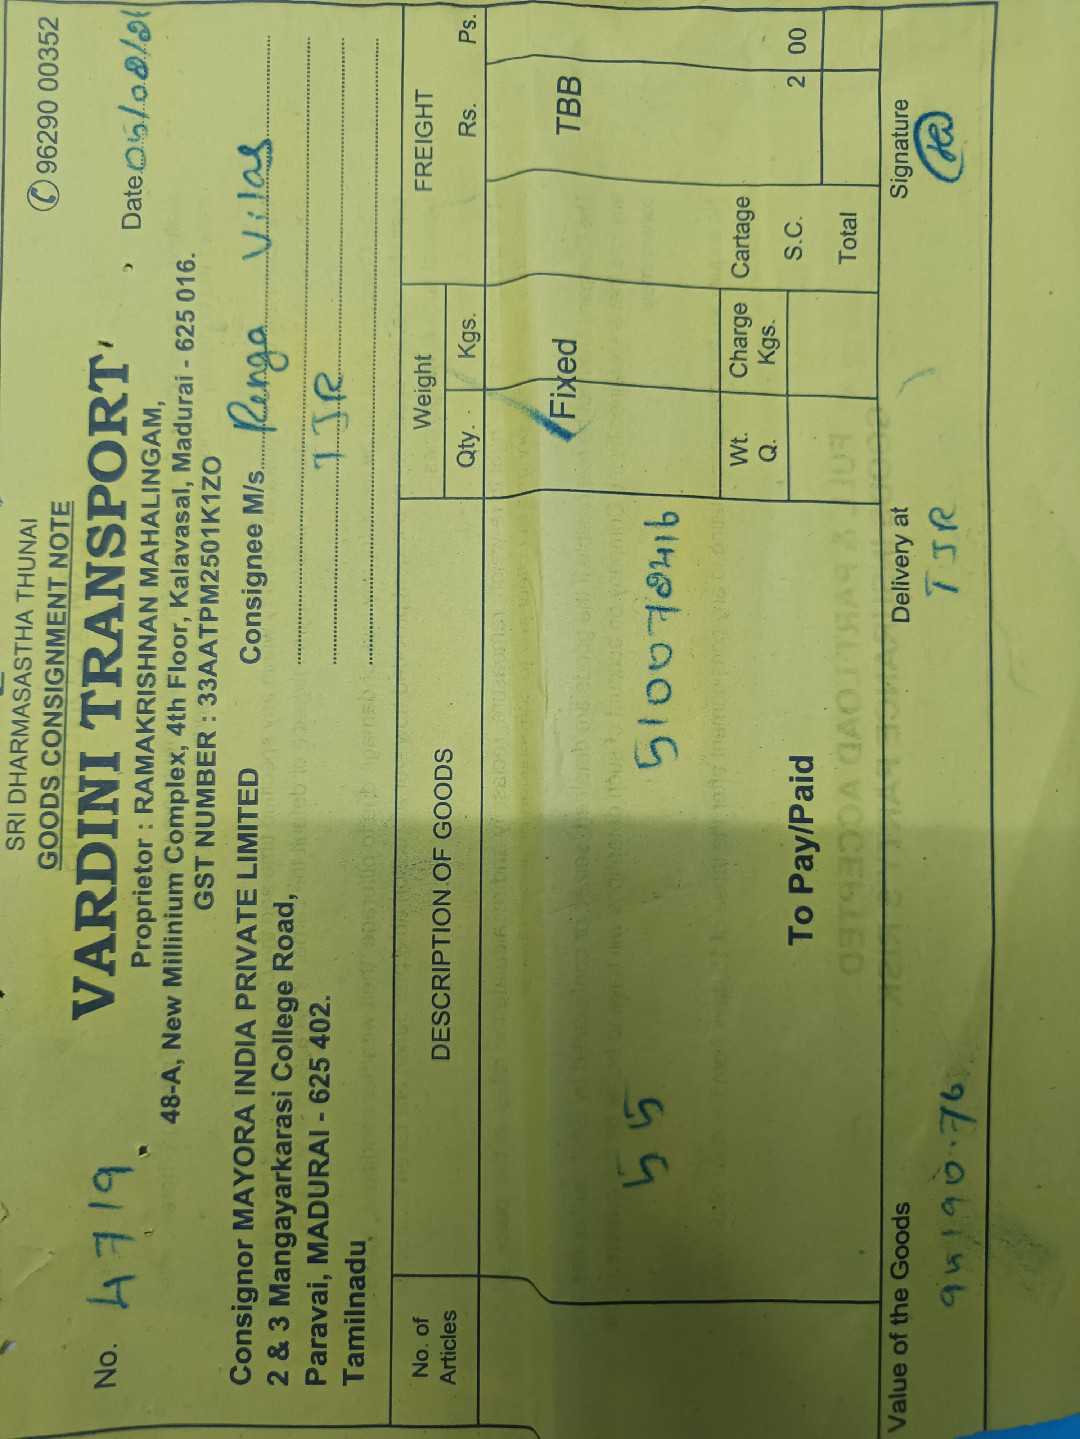 SRI DHARMASASTHA THUNAI
GOODS CONSIGNMENT NOTE
✆ 96290 00352
No. 4719
VARDINI TRANSPORT
Date
Proprietor : RAMAKRISHNAN MAHALINGAM,
48-A, New Millinium Complex, 4th Floor, Kalavasal, Madurai - 625 016.
GST NUMBER : 33AATPM2501K1ZO
Consignor MAYORA INDIA PRIVATE LIMITED
2 & 3 Mangayarkarasi College Road,
Paravai, MADURAI - 625 402.
Tamilnadu
Consignee M/s. Renga Vilas
TJR
No. of Articles
DESCRIPTION OF GOODS
Weight
Qty. Kgs.
FREIGHT
Rs. Ps.
Fixed
TBB
55
To Pay/Paid
Wt. Q.
Charge Kgs.
Cartage
S.C. 2 00
Total
Value of the Goods
Delivery at
TJR
Signature